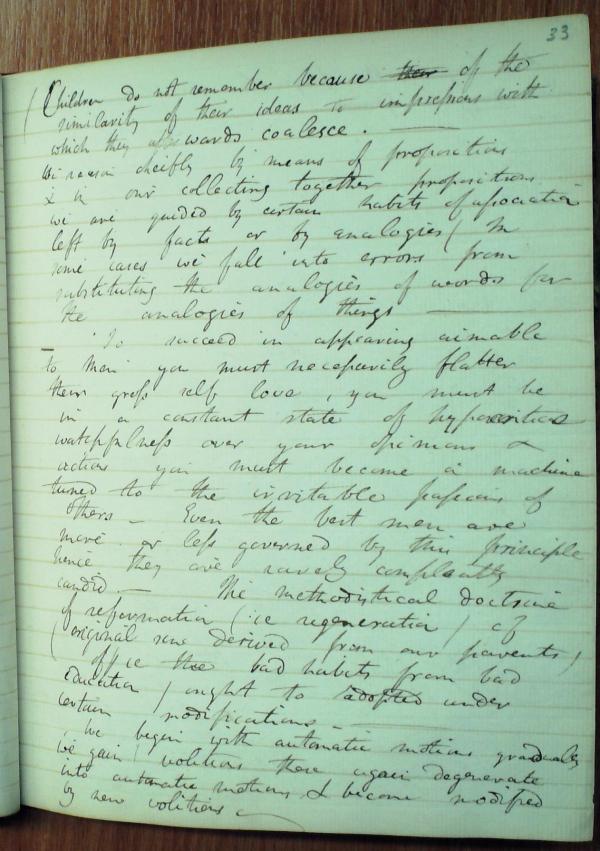 33
( Children do not remember because their of the
similarity of their ideas to impressions with
which they afterwards coalesce. —
We reason cheifly by means of propositions
& in our collecting together propositions
we are guided by certain habits of association
left by facts or by analogies ( In
some cases we fall into errors from
substituting the analogies of words for
the analogies of things —
— To succeed in appearing aimable
to Men you must necessarily flatter
their gross self love, you must be
in a constant state of hypocritical
watchfulness over your opinions &
actions you must become a machine
tuned to the irritable passions of
others — Even the best men are
more or less governed by this principle
hence they are rarely compleatly
candid. — The methodistical doctrine
of reformation (ie regeneration) of
(original sins derived from our parents)
ie the bad habits from bad
education ) ought to adopted under
certain modifications —
We begin with automatic motions gradually
we gain volitions these again degenerate
into automatic motions & become modified
by new volitions